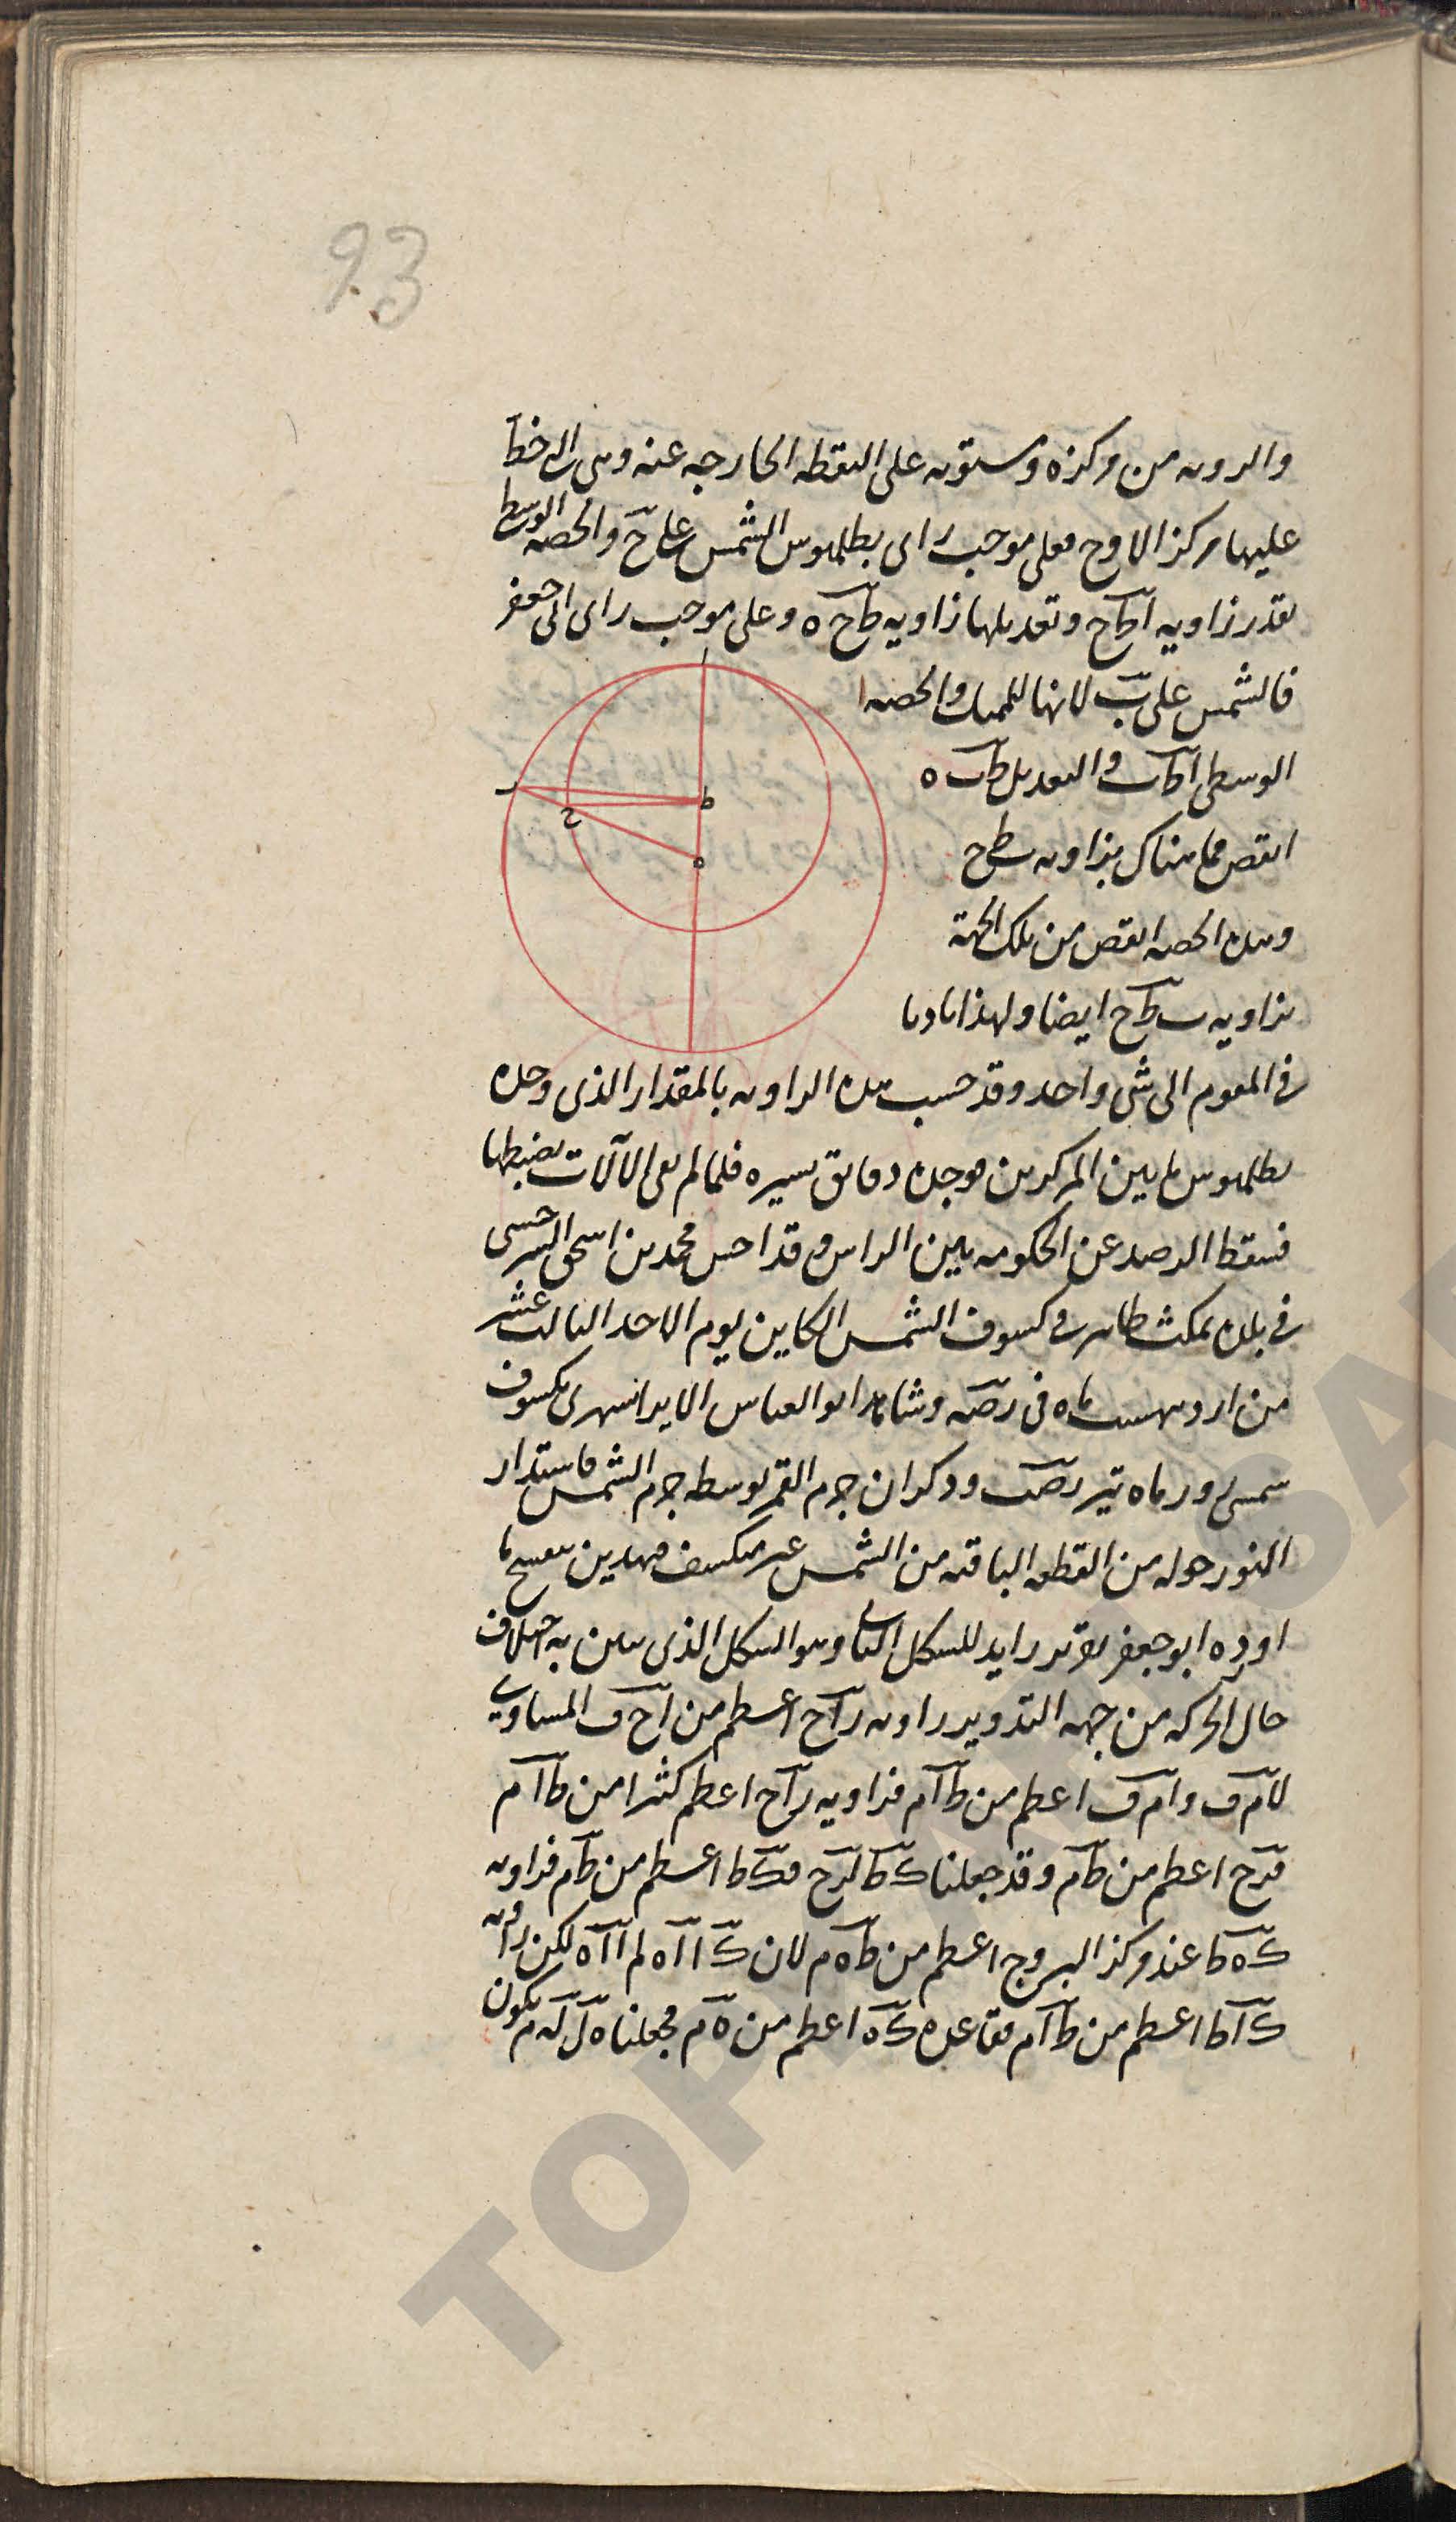 93
والروىه من مركزه ومستويه على النقطه الخارجه عنه وهى التى خط
عليها مركز الاوج فعلى موجب راى بطلميوس الشمس على ح والحصه الوسطى
بقدر زاويه اطح وتعديلها زاويه طح ه وعلى موجب راى ابى جعفر
فالشمس على ب لانها للممثل والحصه
الوسطى اطب والتعديل طب ه
انقص مما هناك بزاويه ب ط ح
وهذه الحصه انقص من تلك الجهة
بزاويه ب طح ايضا ولهذا تاديا
فى المقوم الى شى واحد وقد حسب هذه الزاويه بالمقدار الذى وجده
بطلميوس ما بين المركزين فوجده دقايق يسيره فلما لم تفى الآلات بضبطها
فسقط الرصد عن الحكومه بين الراين وقد احس محمد بن اسحق السرخسى
فى بلده بمكث ظاهر فى كسوف الشمس الكاين يوم الاحد الثالث عشر
من ارديبهشت ماه فى رصه وشاهد ابو العباس الايرانشهرى بكسوف
شمسى ورماه تير رصب وذكر ان جرم القمر توسط جرم الشمس فاستدار
النور حوله من القطعه الباقيه من الشمس غير منكسف فهذين ينفسخ ما
اورده ابو جعفر تقرير زايد للشكل الثانى وهو الشكل الذى يبين به اختلاف
حال الحركه من جهه التدوير زاويه راح اعظم من اح ف المساوى
لام ف وام ف اعظم من طام فزاويه راح اعظم كثيرا من طام
فرح اعظم من طم وقد جعلنا ك ط كرح فك ط اعظم من طم فزاويه
ك ه ط عند مركز البروج اعظم من ط ه م لان ك ا اه لم ا اه لكن زاويه
ك اط اعظم من طام فقاعده ك ه اعظم من ه م فجعلنا ه ل ل ه م يكون
ا
ط
ح
ه
ب
TOPKAPI SA